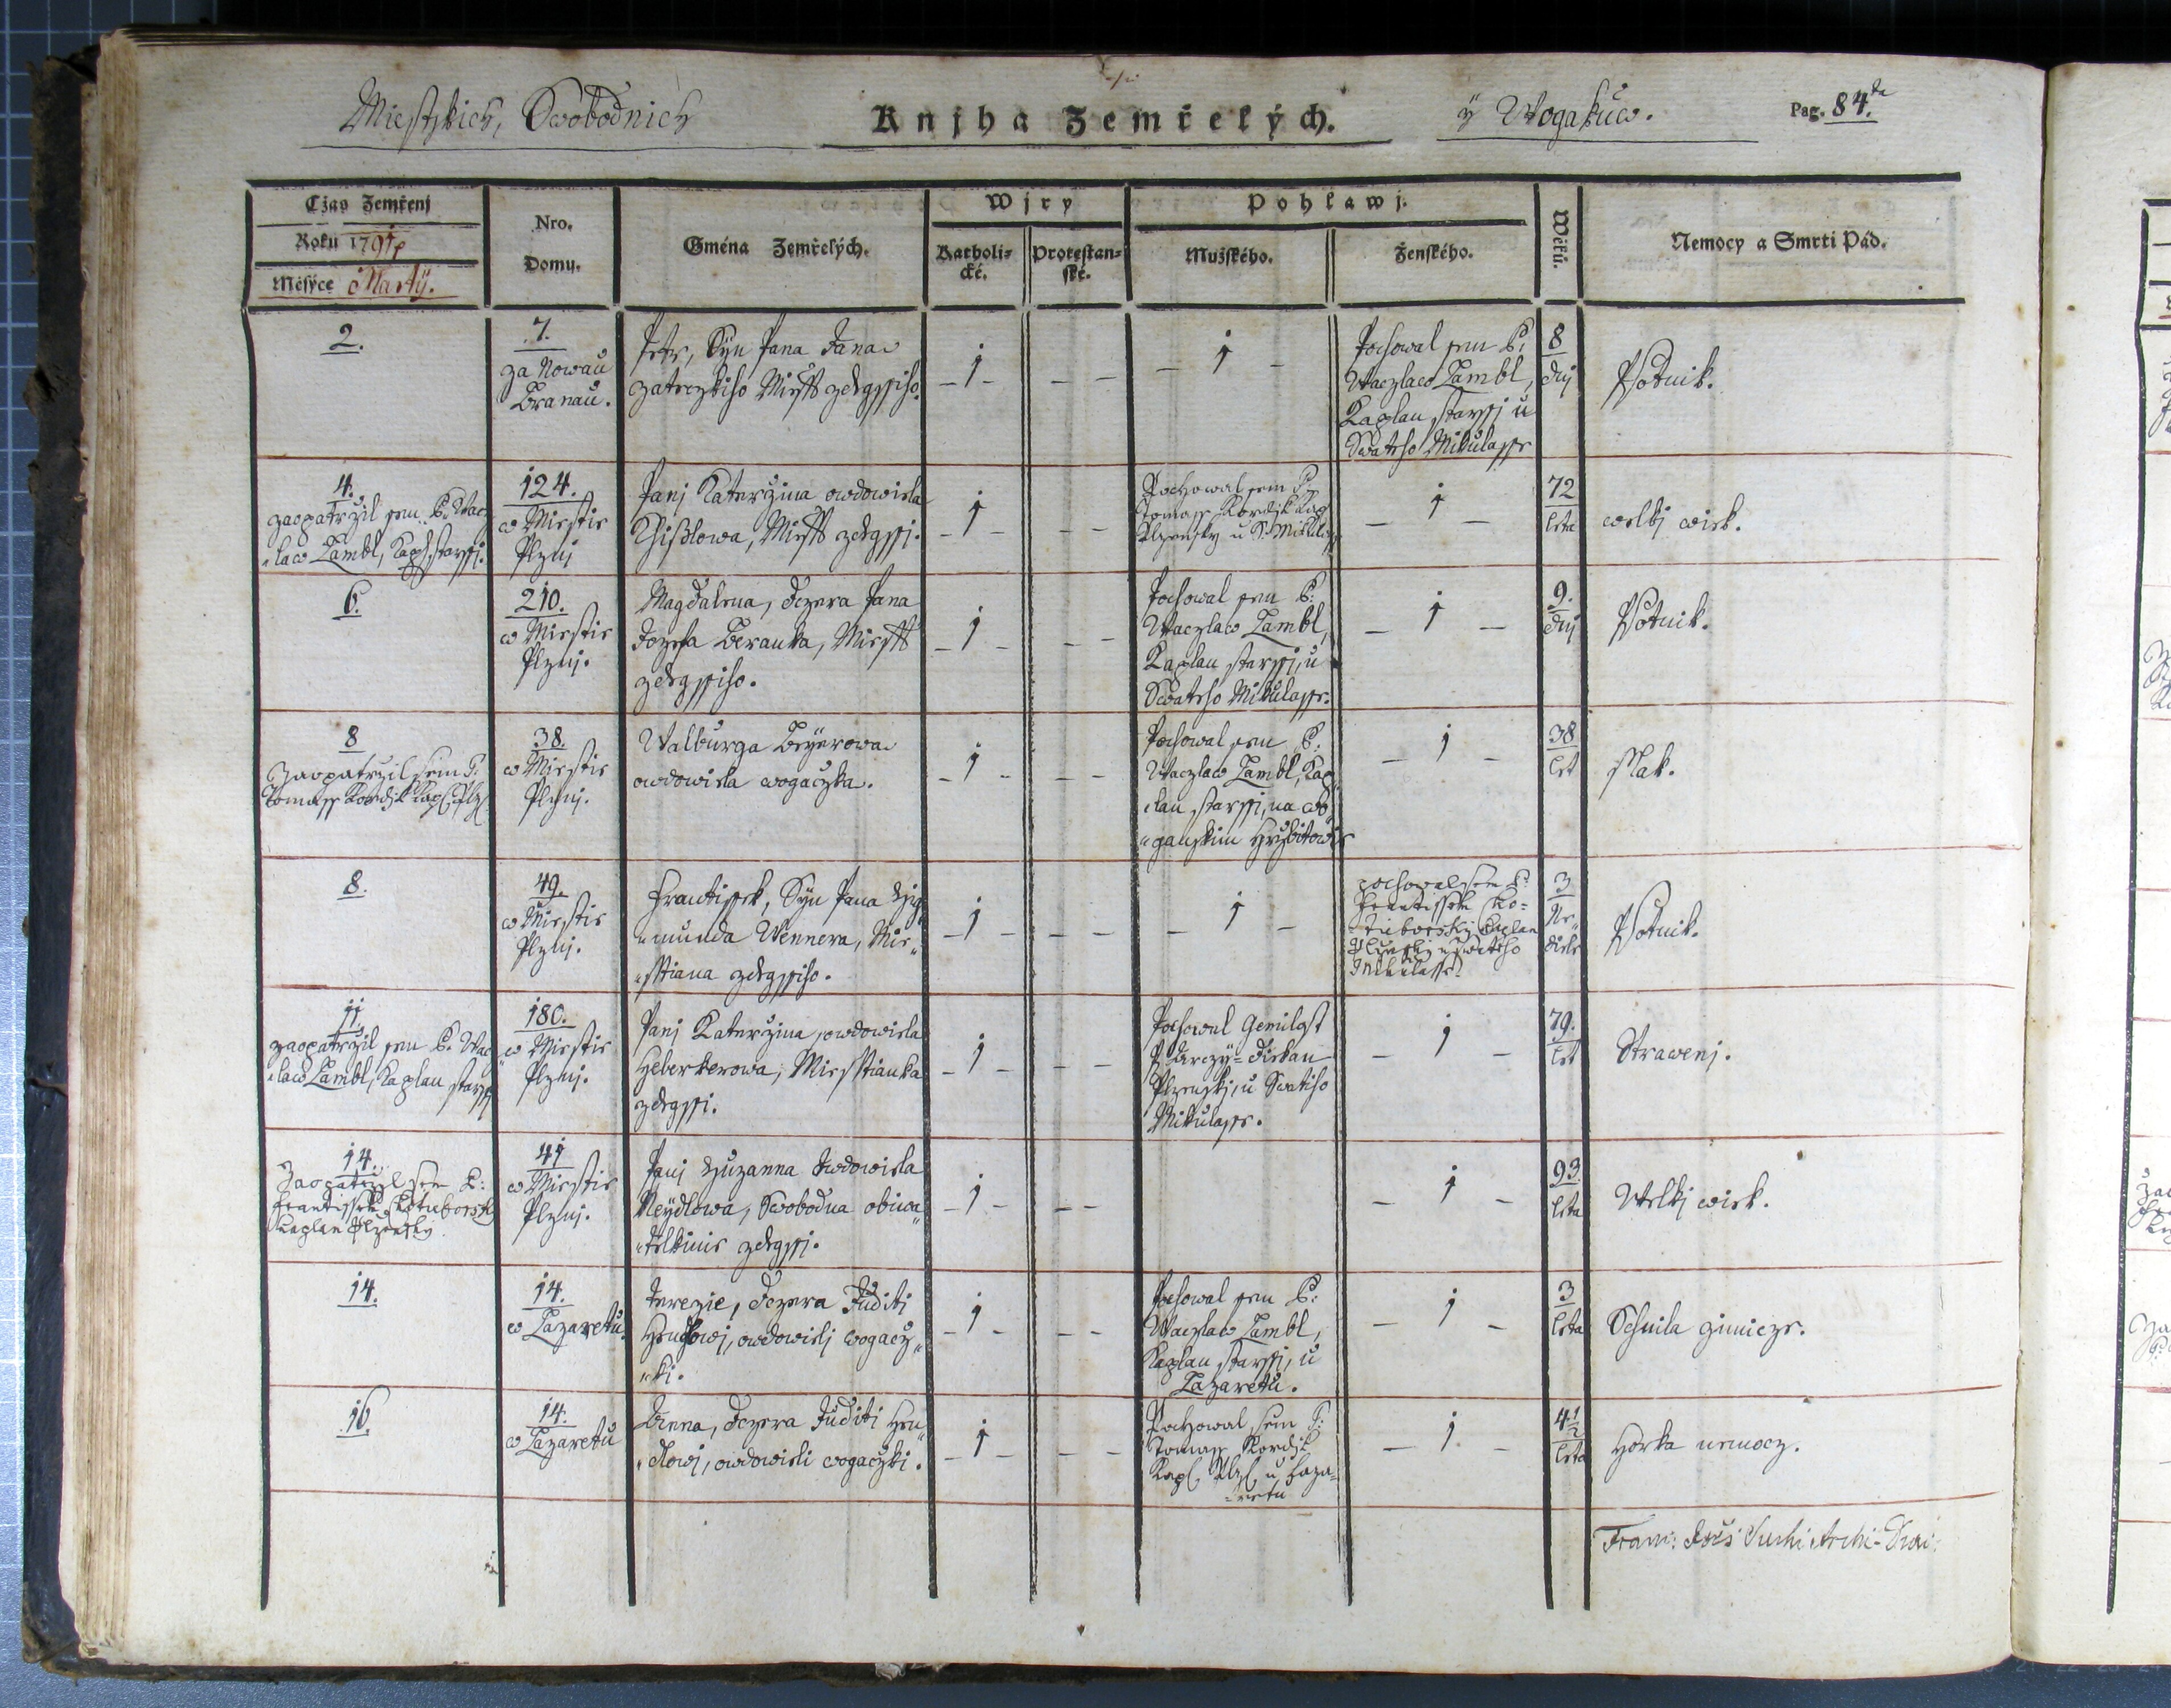 Miestzkich, Swobodnich
Knjha Zemřelých.
ÿ Wogakůw.
Pag. 84.
Cžas Zemřenj
Roku 179
Měsýce Martÿ.
Nro.
Domu.
Gména Zemřelých.
Wjry
Katholi-
cké.
Protestan-
ské.
Pohlawj.
Mužského.
Ženského.
Wěků.
Nemocy a Smrti Pád.
2.
7.
za Nowau
Branau.
Petr, Syn Pana Jana
zdegssiho.
- 1 -
- -
- 1 -
Pochowal sem P:
Waczlaw Lambl,
Kaplan starssj u
Swateho Mikulasse
8
dnj
Psotnik.
4.
zaopatržil sem P. Wac
"law Lambl, Kapl. starssj.
124.
w Miestie
Plznj
Panj Kateržina owdowiela
Miesst zdegssj.
- 1 -
- -
Pochowal sem P.
Tomass Kordik Kap
Plzensky u S. Mikulass
- 1 -
72
leta
welkj wiek.
6.
210.
w Miestie
Plznj.
Magdalena, dczera Pana
Jozefa Beranka, Miesst
zdegssiho.
- 1 -
- -
Pochowal sem P:
Waczlaw Lambl,
Kaplan starssj, u
Swateho Mikulasse.
- 1 -
9.
dnj
Psotnik.
8
Zaopatrzil sem P:
Tomass Kordik Kapl. Plz.
38.
w Miestie
Plznj.
Walburga Beÿerowa
owdowiela wogaczka.
- 1 -
- -
Pochowal sem P:
Waczlaw Lambl, Kap
"lan starssj, na wo
"ganskim Hrzbitowie
- 1 -
38
let
Flak.
8.
49.
w Miestie
Plznj.
Frantissek, Syn Pana Zig
"munda Wennera, Mie"
"sstiana zdegssiho.
- 1 -
- -
- 1 -
pochowal sem P:
Frantissek Ko-
tieborsky Caplan
Plzensky u Swateho
Mikulasse
3
Ne"
diele
Psotnik.
11.
zaopatržil sem P. Wac
"law Lambl, Kaplan starss
180.
w Miestie
Plznj.
Panj Kateržina, owdowiela
Heberkerowa, Miesstianka
zdegssi.
- 1 -
- -
Pochowal Gemilost
P. Arczÿ=diekan
Plzenskj, u Swatiho
Mikulasse.
- 1 -
79.
let
Strawenj.
14.
Zaopatrzil sem P:
Frantissek Kotieborsky
Caplan Plzensky
41
w Miestie
Plznj.
Panj Zuzanna Owdowiela
Neÿdlowa, Swobodna obiwa"
"telkinie zdegssj.
- 1 -
- -
- 1 -
93.
leta
Welkj wiek.
14.
14.
w Lazaretu.
Terezie, dczera Juditi
owdowielj wogacz"
"ki.
- 1 -
- -
Pochowal sem P:
Waczlaw Lambl,
Kaplan starssj, u
Lazaretu.
- 1 -
3
leta
Schnila zimicze.
16.
14.
w Lazaretu
Anna, dczera Juditi Hen"
"dlowj, owdowieli wogaczki.
- 1 -
- -
Pochowal sem P:
Tomass Kordik
Kapl. Plz. u Laza-
-retu
- 1 -
4 1/2
leta
Horka nemocz.